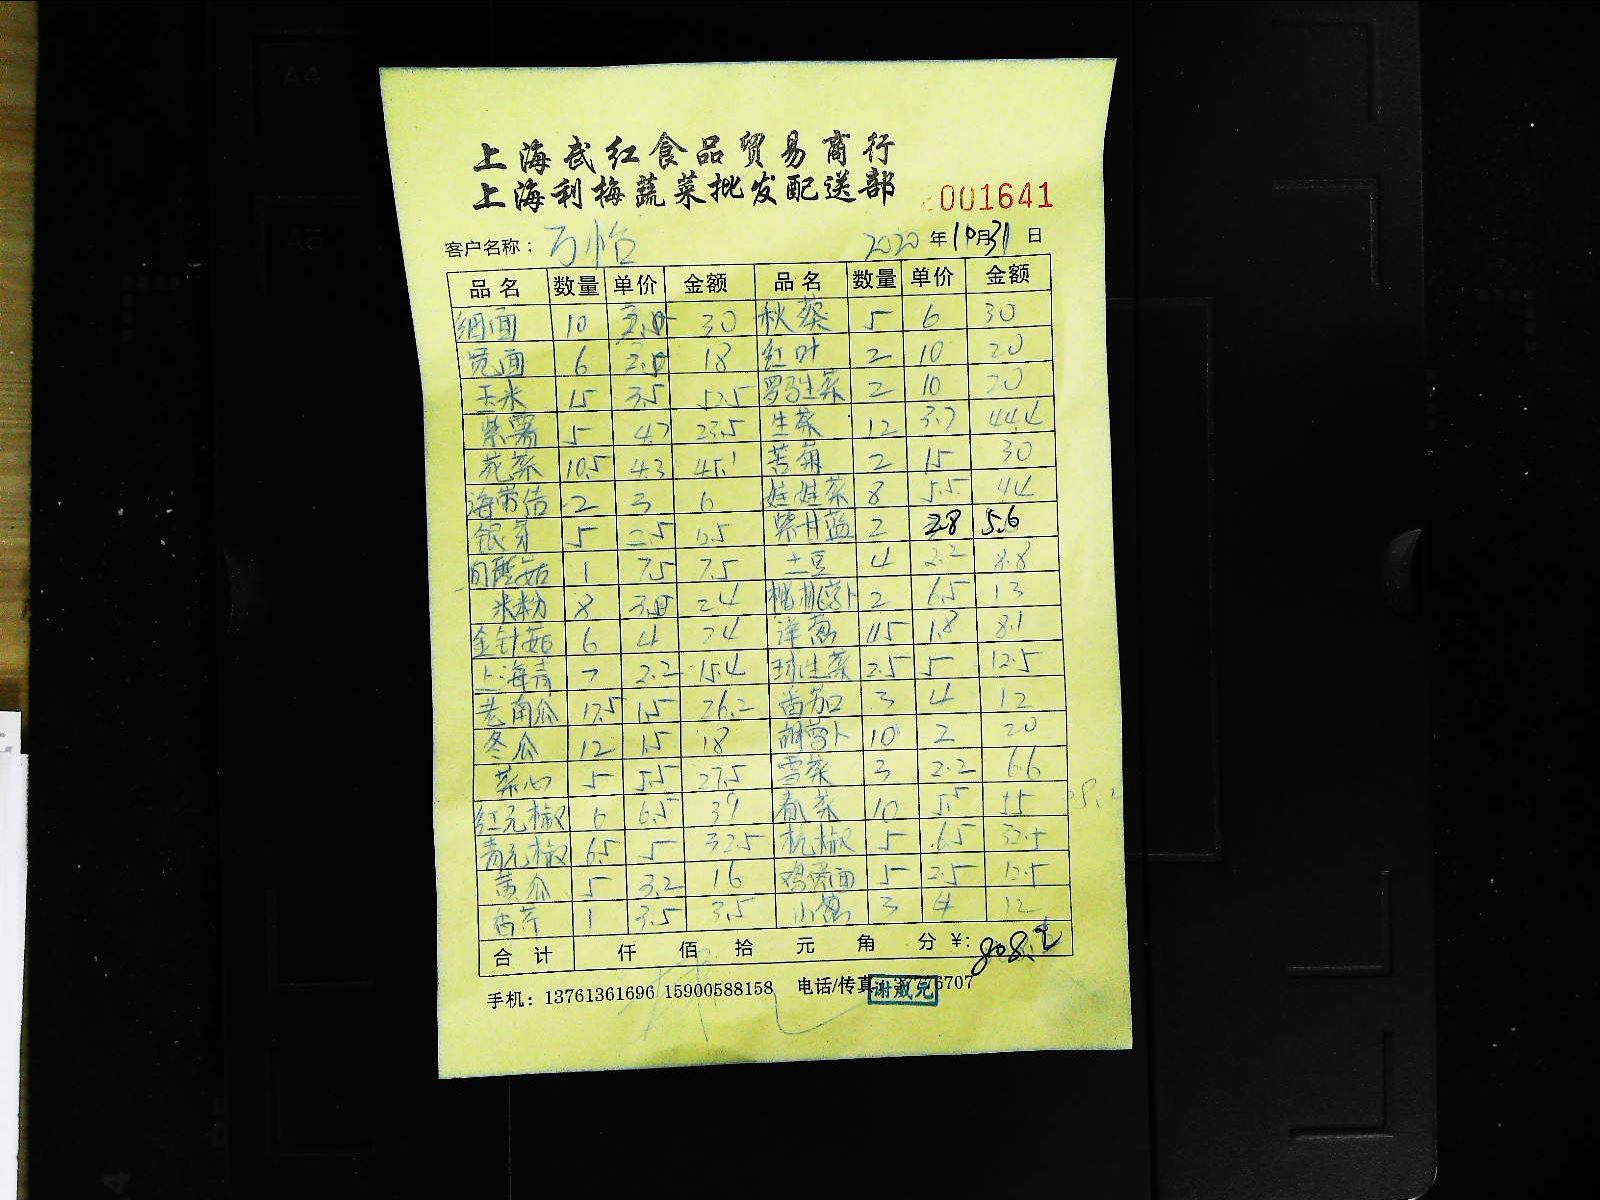 上海武红食品贸易商行
上海利梅蔬菜批发配送部
001641
客户名称：万怡 2020年10月31日
品名 数量 单价 金额 品名 数量 单价 金额
细面 10 30 秋葵 5 6 30
宽面 6 18 红叶 2 10 20
玉米 15 3.5 52.5 罗马生菜 2 10 20
紫薯 5 4.7 23.5 生菜 12 3.7 44.4
花菜 10.5 4.3 45.1 苦菊 2 15 30
海带结 2 3 6 娃娃菜 8 5.5 44
银芽 5 紫甘蓝 2 2.8 5.6
白蘑菇 1 7.5 7.5 土豆 4 2.2 8.8
米粉 8 24 2 6.5 13
金针菇 6 4 24 洋葱 4.5 1.8 8.1
上海青 7 2.2 15.4 球生菜 2.5 5 12.5
老南瓜 17.5 1.5 26.2 番茄 3 4 12
冬瓜 12 1.5 18 胡萝卜 10 2 20
菜心 5 5.5 27.5 雪菜 3 2.2 6.6
红元椒 6 6.5 39 10 5.5 55
青元椒 6.5 5 32.5 杭椒 5 6.5 32.5
黄瓜 5 3.2 16 鸡蛋面 5 2.5 12.5
香芹 1 3.5 3.5 小葱 3 4 12
合计 仟 佰 拾 元 角 分 ¥: 808.2
手机：13761361696 15900588158 电话/传真 6707